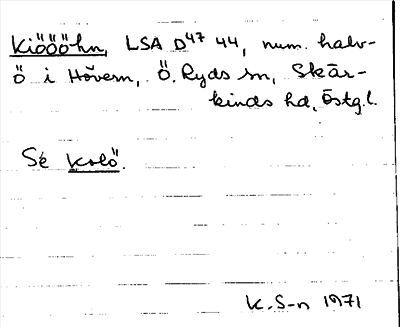 Kiöööhn, LSA D47 44, num. halv-
ö i Hövern, Ö. Ryds sn, Skär-
kinds hd, Östg.l.
Se Kolö.
K.S-n 1971